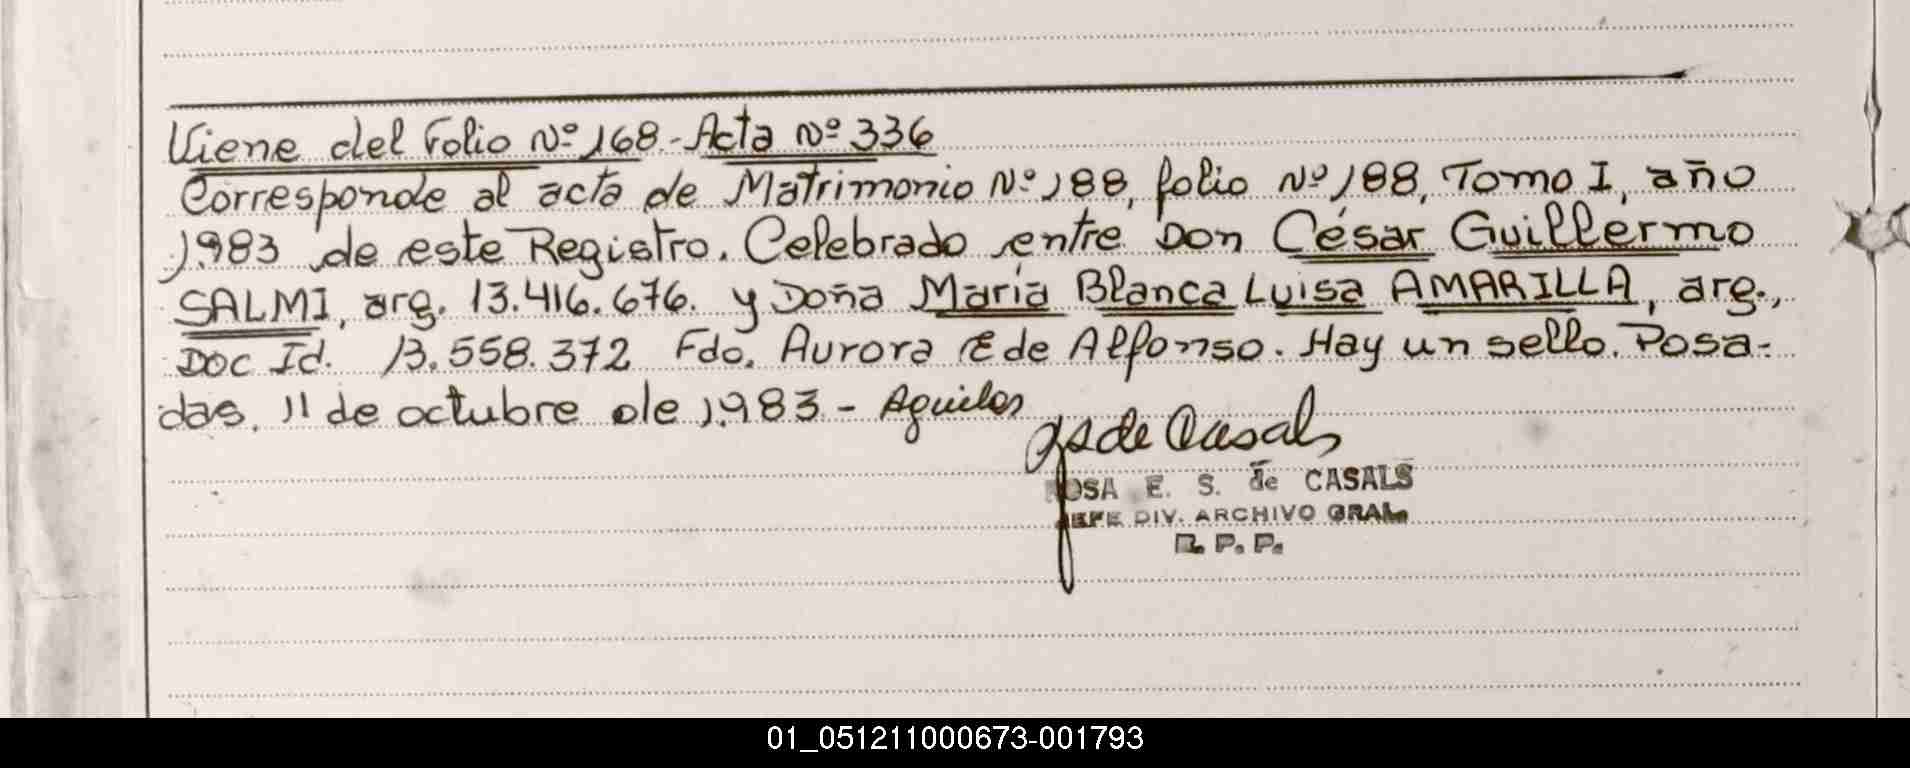 Viene del Folio Nº 168 - Acta Nº 336
Corresponde al acta de Matrimonio Nº 188, folio Nº 188, Tomo I, año
1.983 de este Registro. Celebrado entre Don César Guillermo
SALMI, arg. 13.416.676. y Doña María Blanca Luisa AMARILLA, arg.,
Doc Id. 13.558.372 Fdo. Aurora E de Alfonso. Hay un sello. Posa-
das, 11 de octubre de 1.983 -
de Casals
ROSA E. S. de CASALS
JEFE DIV. ARCHIVO GRAL.
R. P. P.
01_051211000673-001793